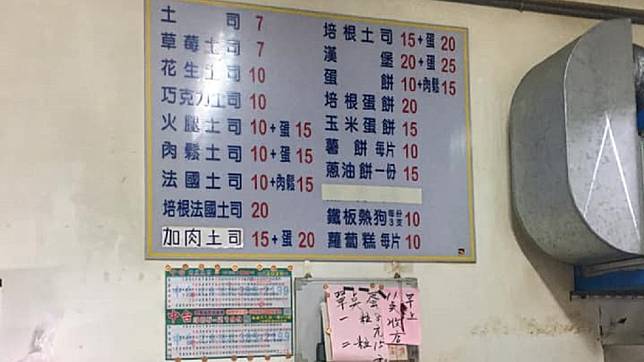 土司 7
草莓土司 7
花生土司 10
巧克力土司 10
火腿土司 10+蛋 15
肉鬆土司 10+蛋 15
法國土司 10+肉鬆 15
培根法國土司 20
加肉土司 15+蛋 20
培根土司 15+蛋 20
漢堡 20+蛋 25
蛋餅 10+肉鬆 15
培根蛋餅 20
玉米蛋餅 15
薯餅 每片 10
蔥油餅 一份 15
鐵板熱狗 每份3支 10
蘿蔔糕 每片 10
中台